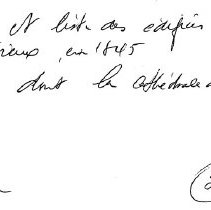 et liste des édifices
ieux, en 1845
dont la cathédrale d